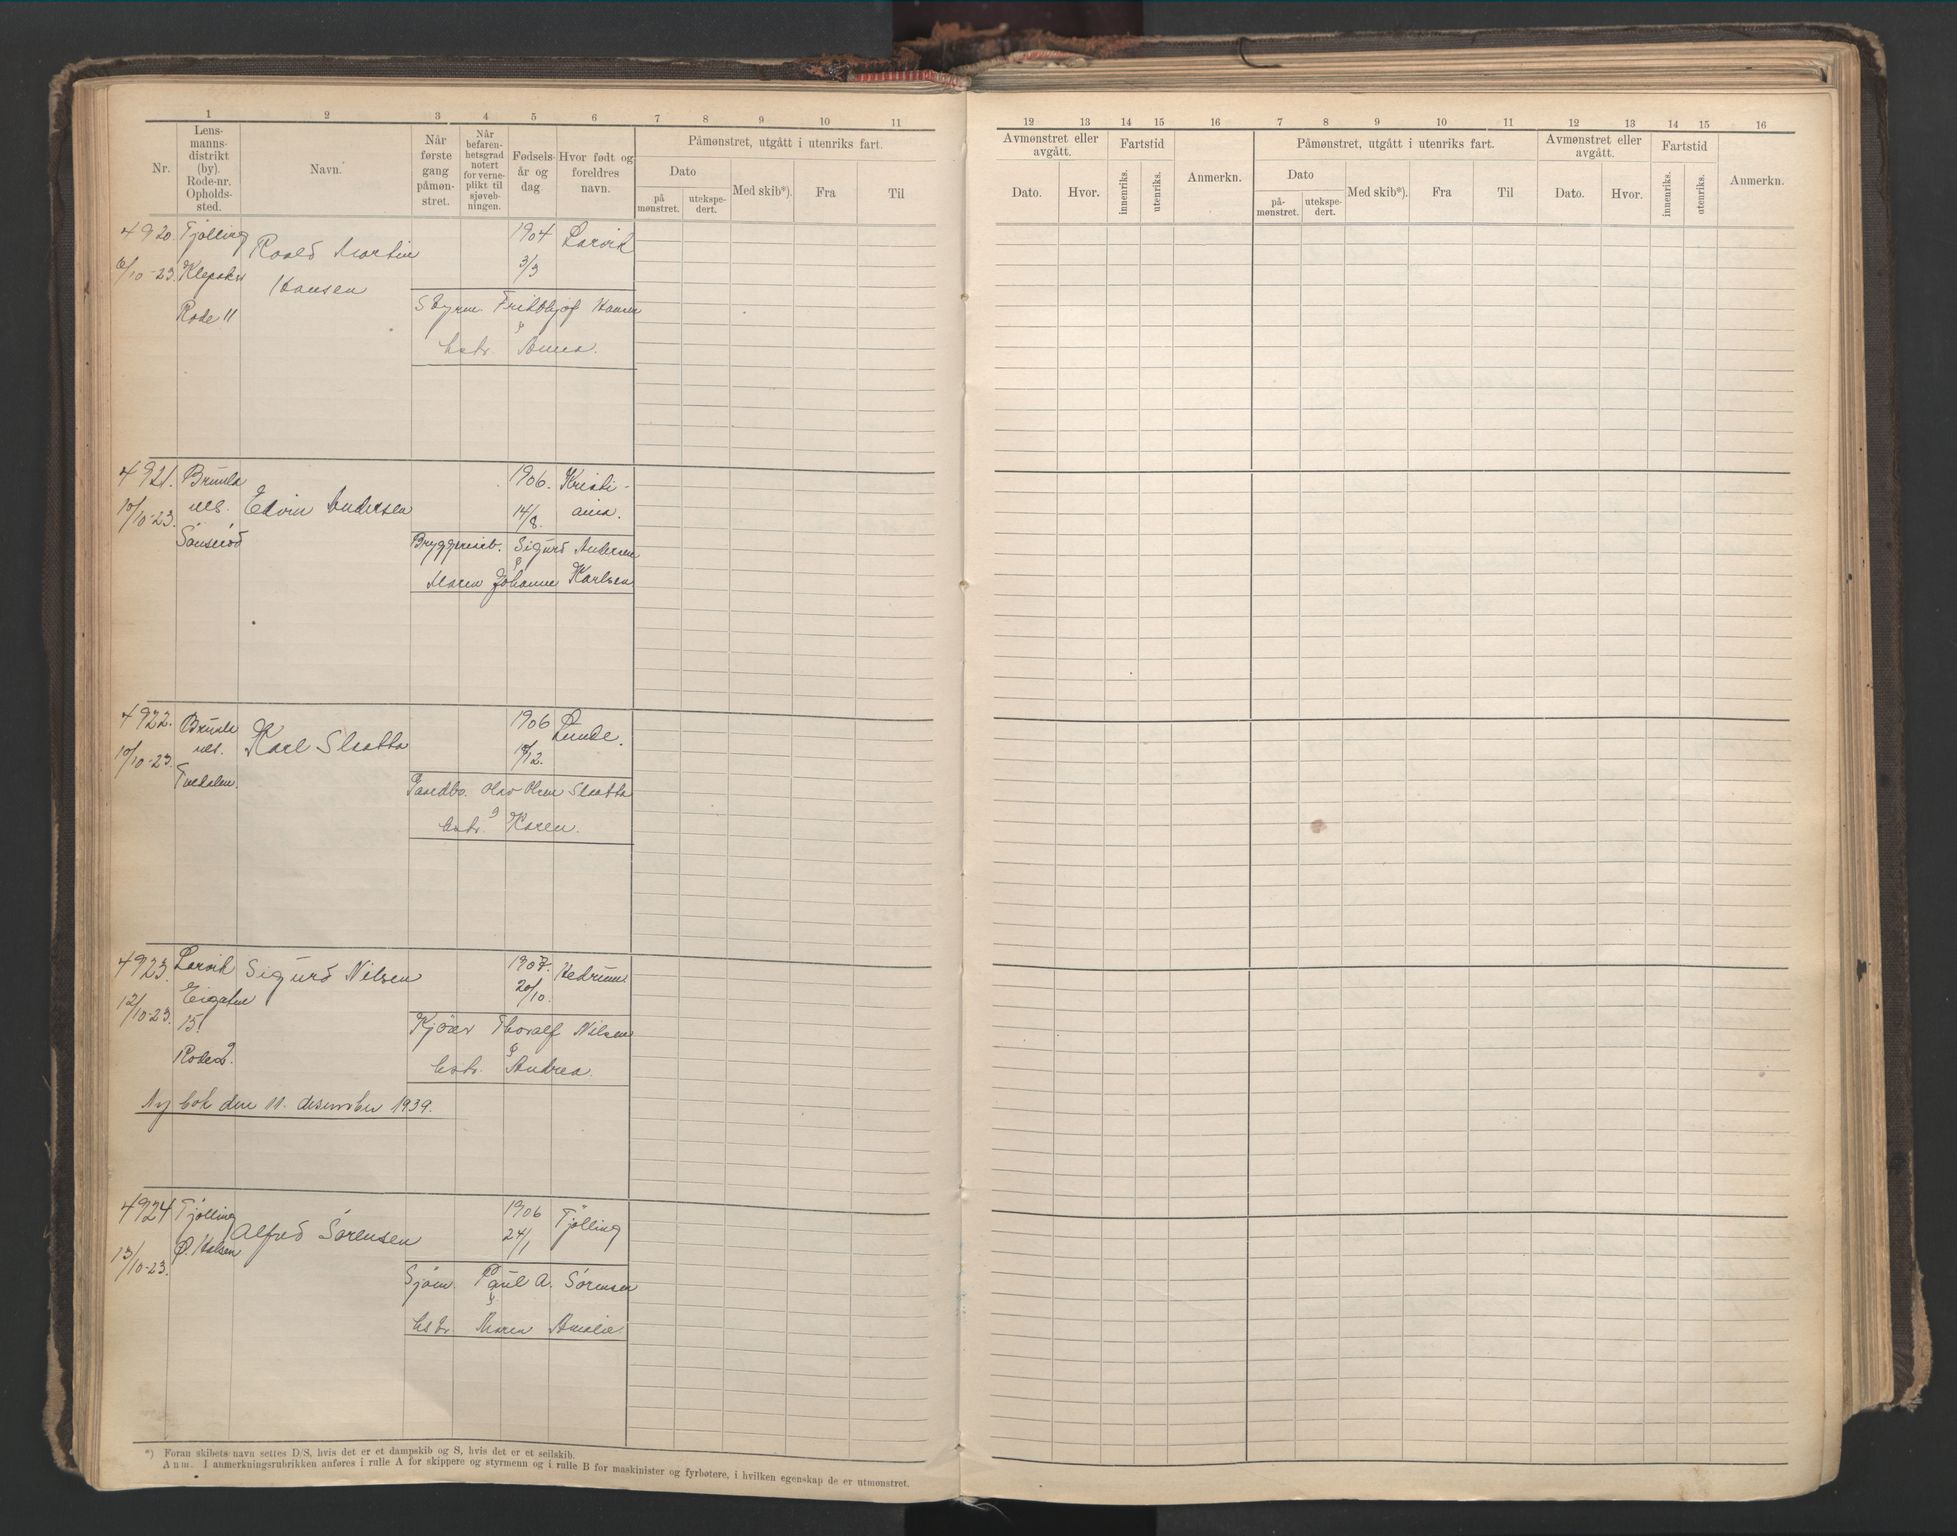 1 2 3 4 5 6 7 8 9 10 11
Nr.
Lens-
manns-
distrikt
(by).
Rode-nr.
Opholds-
sted.
Navn.
Når
første
gang
påmøn-
stret.
Når
befaren-
hetsgrad
notert
for verne-
plikt til
sjøveb-
ningen.
Fødsels-
år og
dag.
Hvor født og
foreldres
navn.
Påmønstret, utgått i utenriks fart.
Dato
på
mønstret.
utekspe-
dert.
Med skib*).
Fra
Til
12 13 14 15 16 7 8 9 10 11 12 13 14 15 16
Avmønstret eller
avgått.
Dato.
Hvor.
Fartstid
innenriks.
utenriks.
Anmerkn.
Påmønstret, utgått i utenriks fart.
Dato
på-
mønstret.
utekspe-
dert.
Med skib*).
Fra
Til
Avmønstret eller
avgått.
Dato.
Hvor.
Fartstid
innenriks.
utenriks.
Anmerkn.
4920. Tjølling Roald Martin 1904 Larvik
6/10-23. 3/3
Hansen
Rode 11
Styrm. Fridthjof Hansen
&
hstr. Anna.
4921. Brunla 1906. Kristi-
10/10-23. Edvin Andersen 14/8. ania.
Sigurd Andersen
&
Maren Johanne Karlsen
4922. Brunla Karl Slaatta 1906 Lunde.
10/10-23.
Tvedalen.
Gaardbr. Olav Olsen Slaatta
&
hstr. Karen.
4923. Larvik Sigurd Nilsen 1907. Hedrum
12/10-23. 20/10.
15.
Rode 2.
Thoralf Nilsen
&
hstr. Andrea.
Ny bok den 11. desember 1939.
4924 Tjølling Alfred Sørensen 1906 Tjølling
13/10-23. Ø. Halsen 24/1
Sjøm. Paul A. Sørensen
&
hstr. Maren Amalie
*) Foran skibets navn settes D/S, hvis det er et dampskib og S, hvis det er et seilskib.
Anm. I anmerkningsrubrikken anføres i rulle A for skippere og styrmenn og i rulle B for maskinister og fyrbøtere, i hvilken egenskap de er utmønstret.